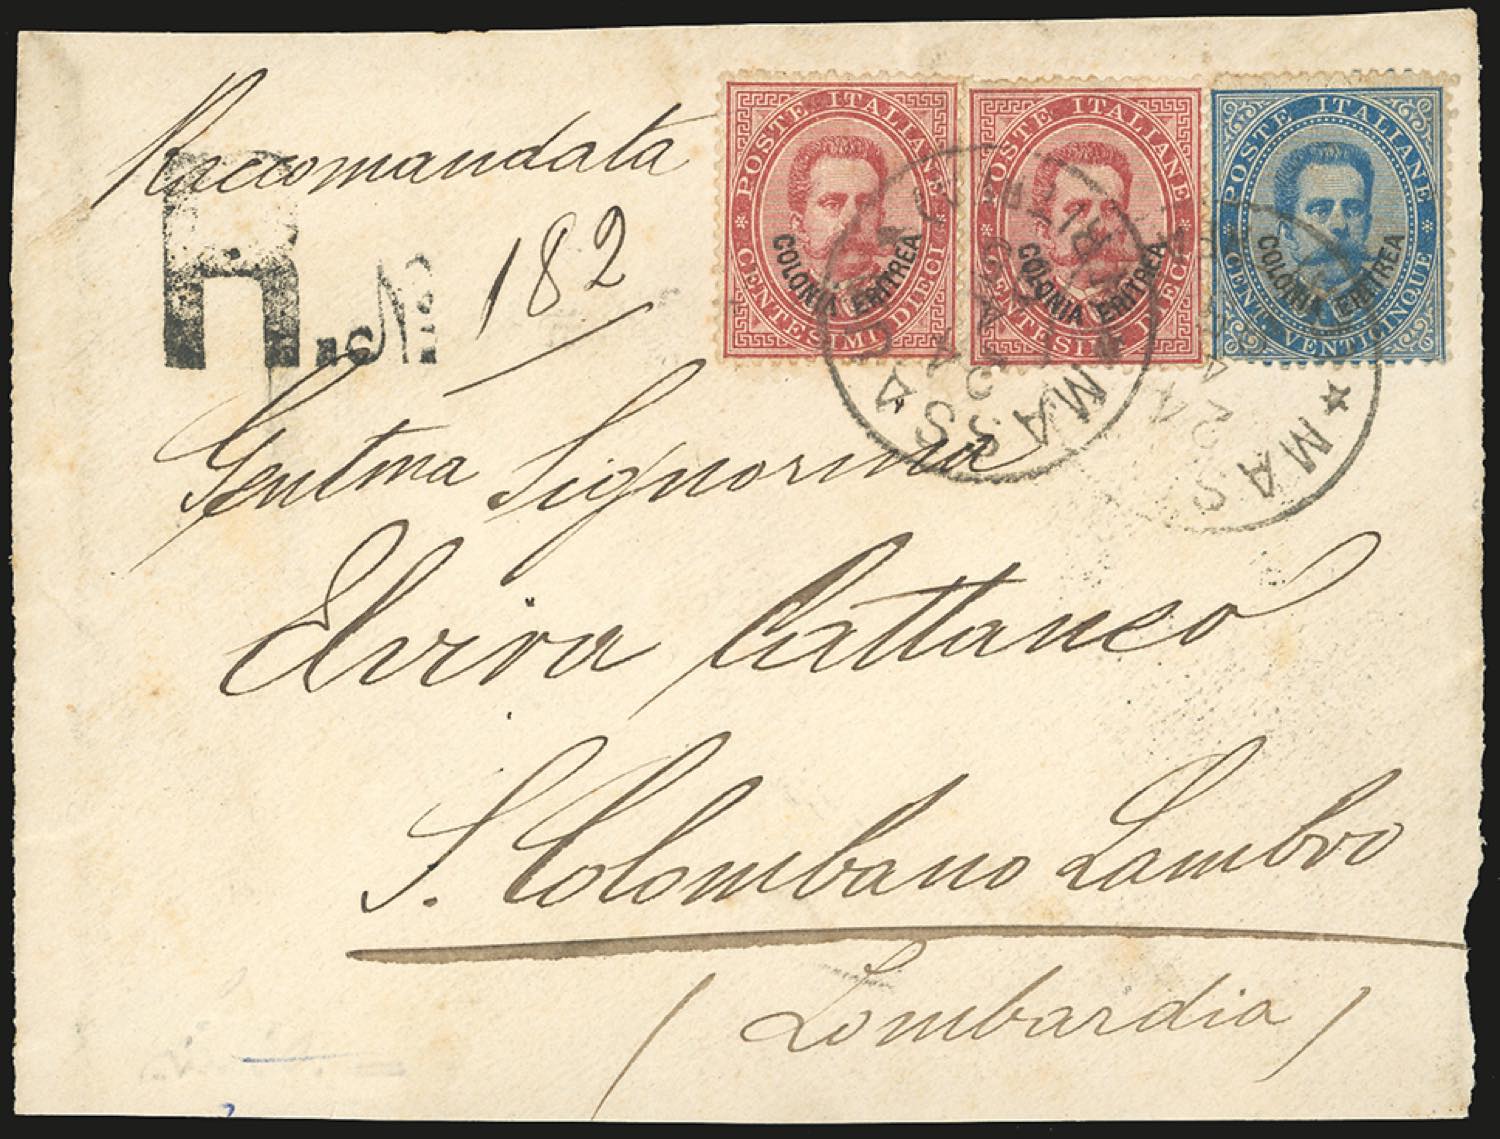 Raccomandata
R. N.
182
POSTE ITALIANE
CENTESIMI DIECI
COLONIA ERITREA
POSTE ITALIANE
CENTESIMI DIECI
COLONIA ERITREA
POSTE ITALIANE
CENT. VENTICINQUE
COLONIA ERITREA
MASSAUA
MAS
Gentma Signorina
Elvira Cattaneo
S. Colombano Lambro
(Lombardia)